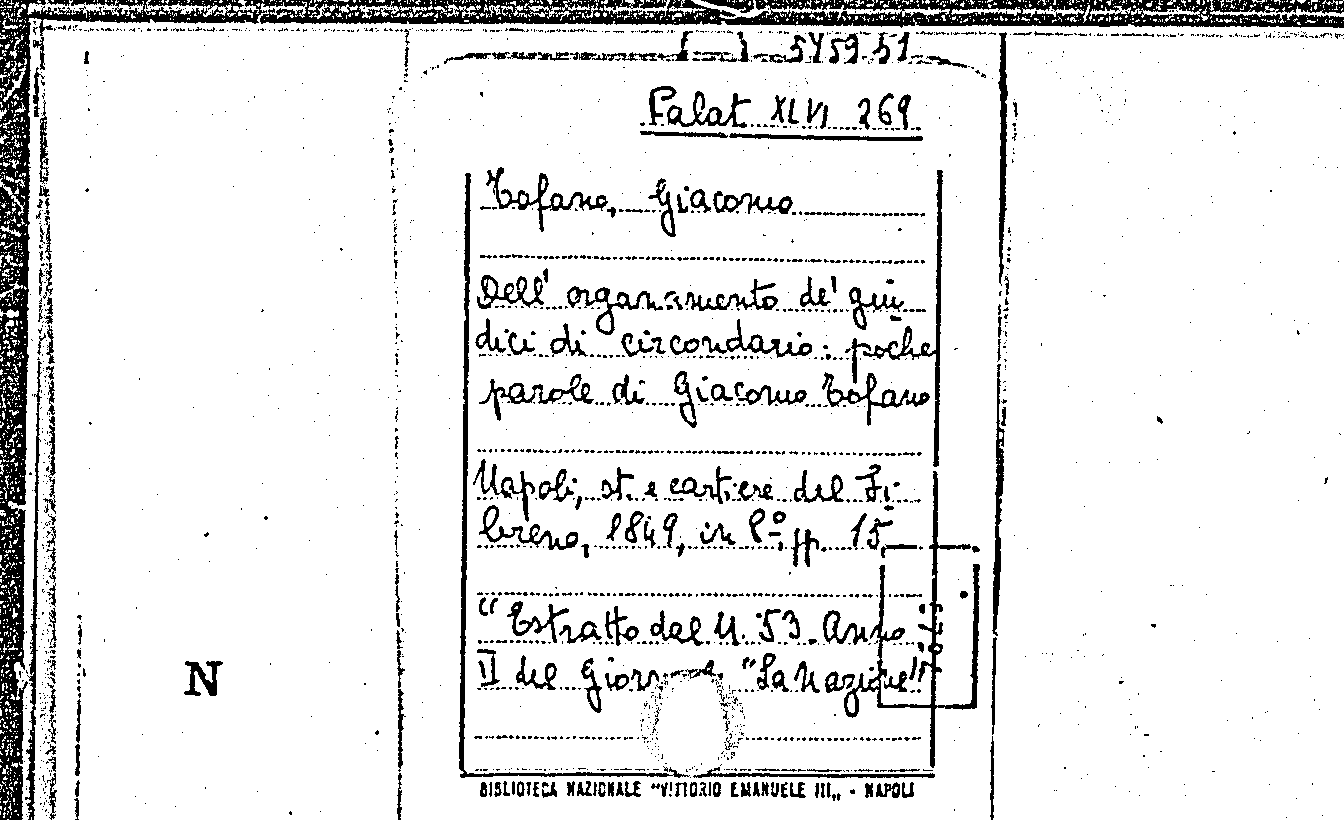 545951
Palat XLVI 269
Tofano, Giacomo
Dell' organamento de' giu
dici di circondario: poche
parole di Giacomo Tofano
Napoli, st. e cartiere del Fi-
breno, 1849, in 8º, pp. 15
"Estratto dal N. 53. Anno
II del "La Nazione"
N
BIBLIOTECA NAZIONALE "VITTORIO EMANUELE III„ - NAPOLI